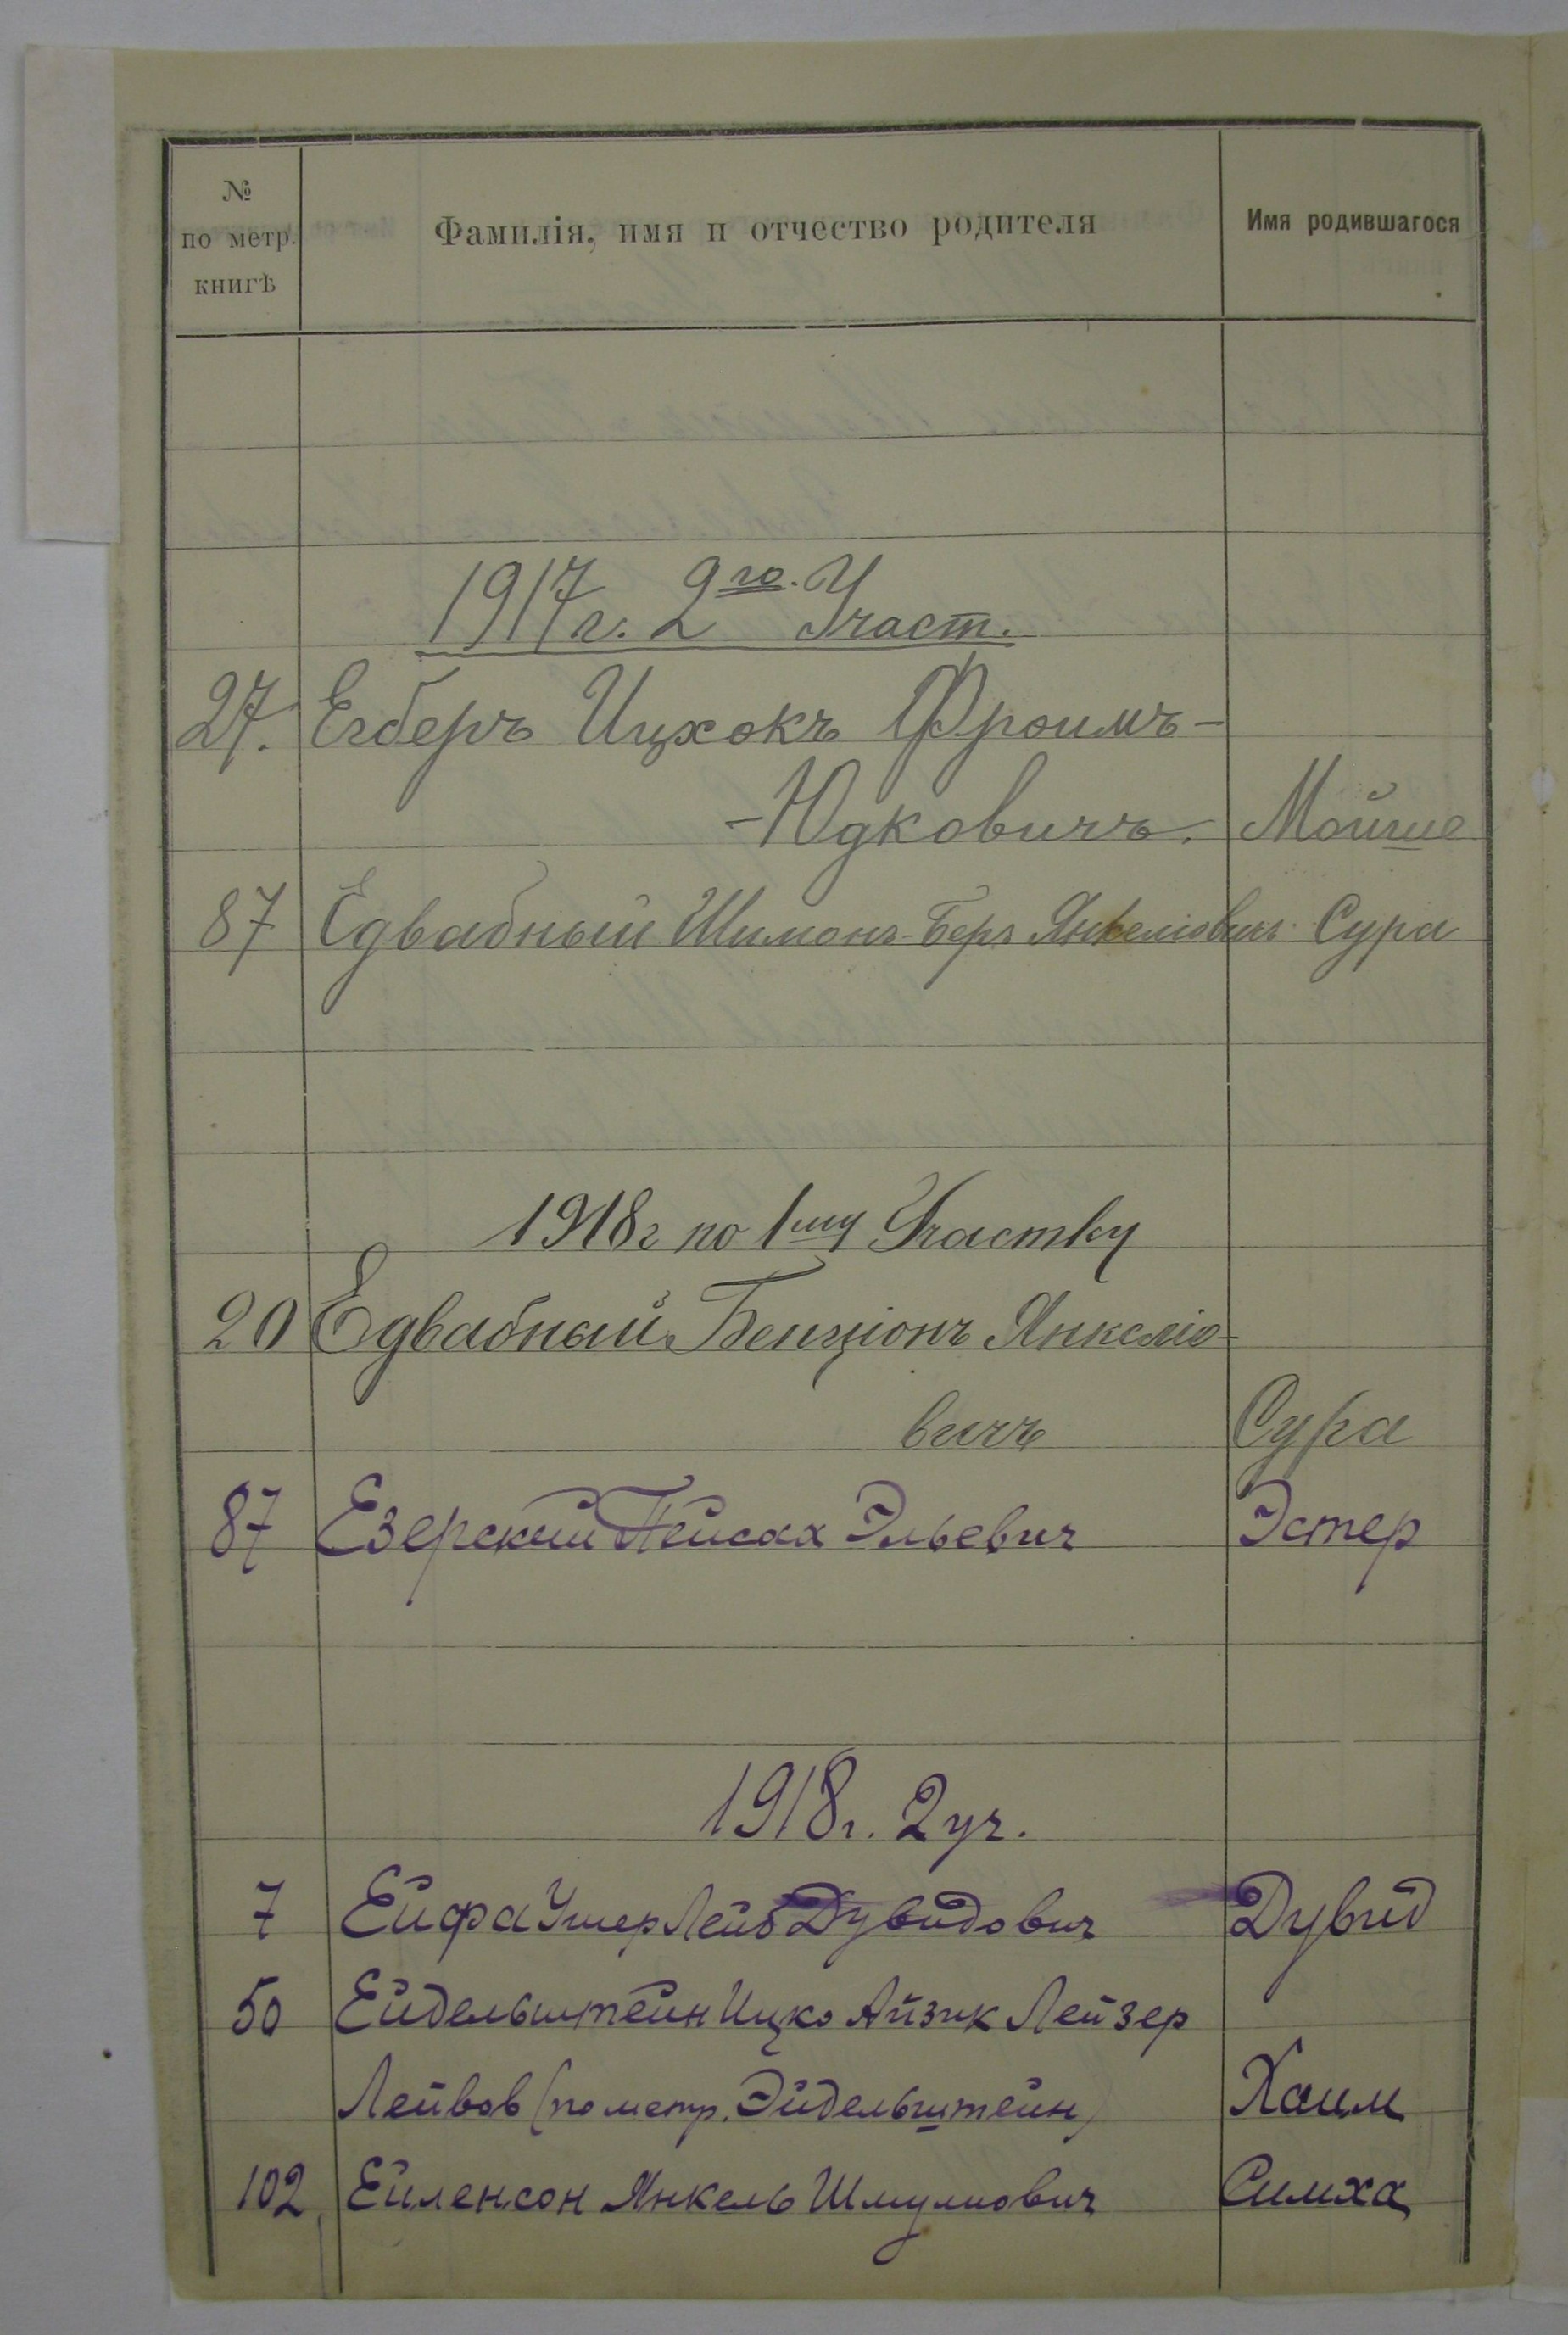 № по метр. книгѣ Фамилія, имя и отчество родителя Имя родившагося
1917 г. 2го. Участ.
27. Егберъ Ицхокъ Фроимъ-
-Юдковичъ. Мойше
87 Едвабный Шимонъ-Беръ Янкеліовичъ Сура
1918 г по 1му Участку
20 Едвабный Бенціонъ Янкеліо-
вичъ Сура
87 Езерский Пейсах Эльевич Эстер
1918 г. 2 уч.
7 Ейфа Ушер Лейб Дувидович Дувид
50 Ейдельштейн Ицко Айзик Лейзер
Лейвов (по метр. Эйдельштейн) Хаим
102 Ейленсон Янкель Шмулиович Симха